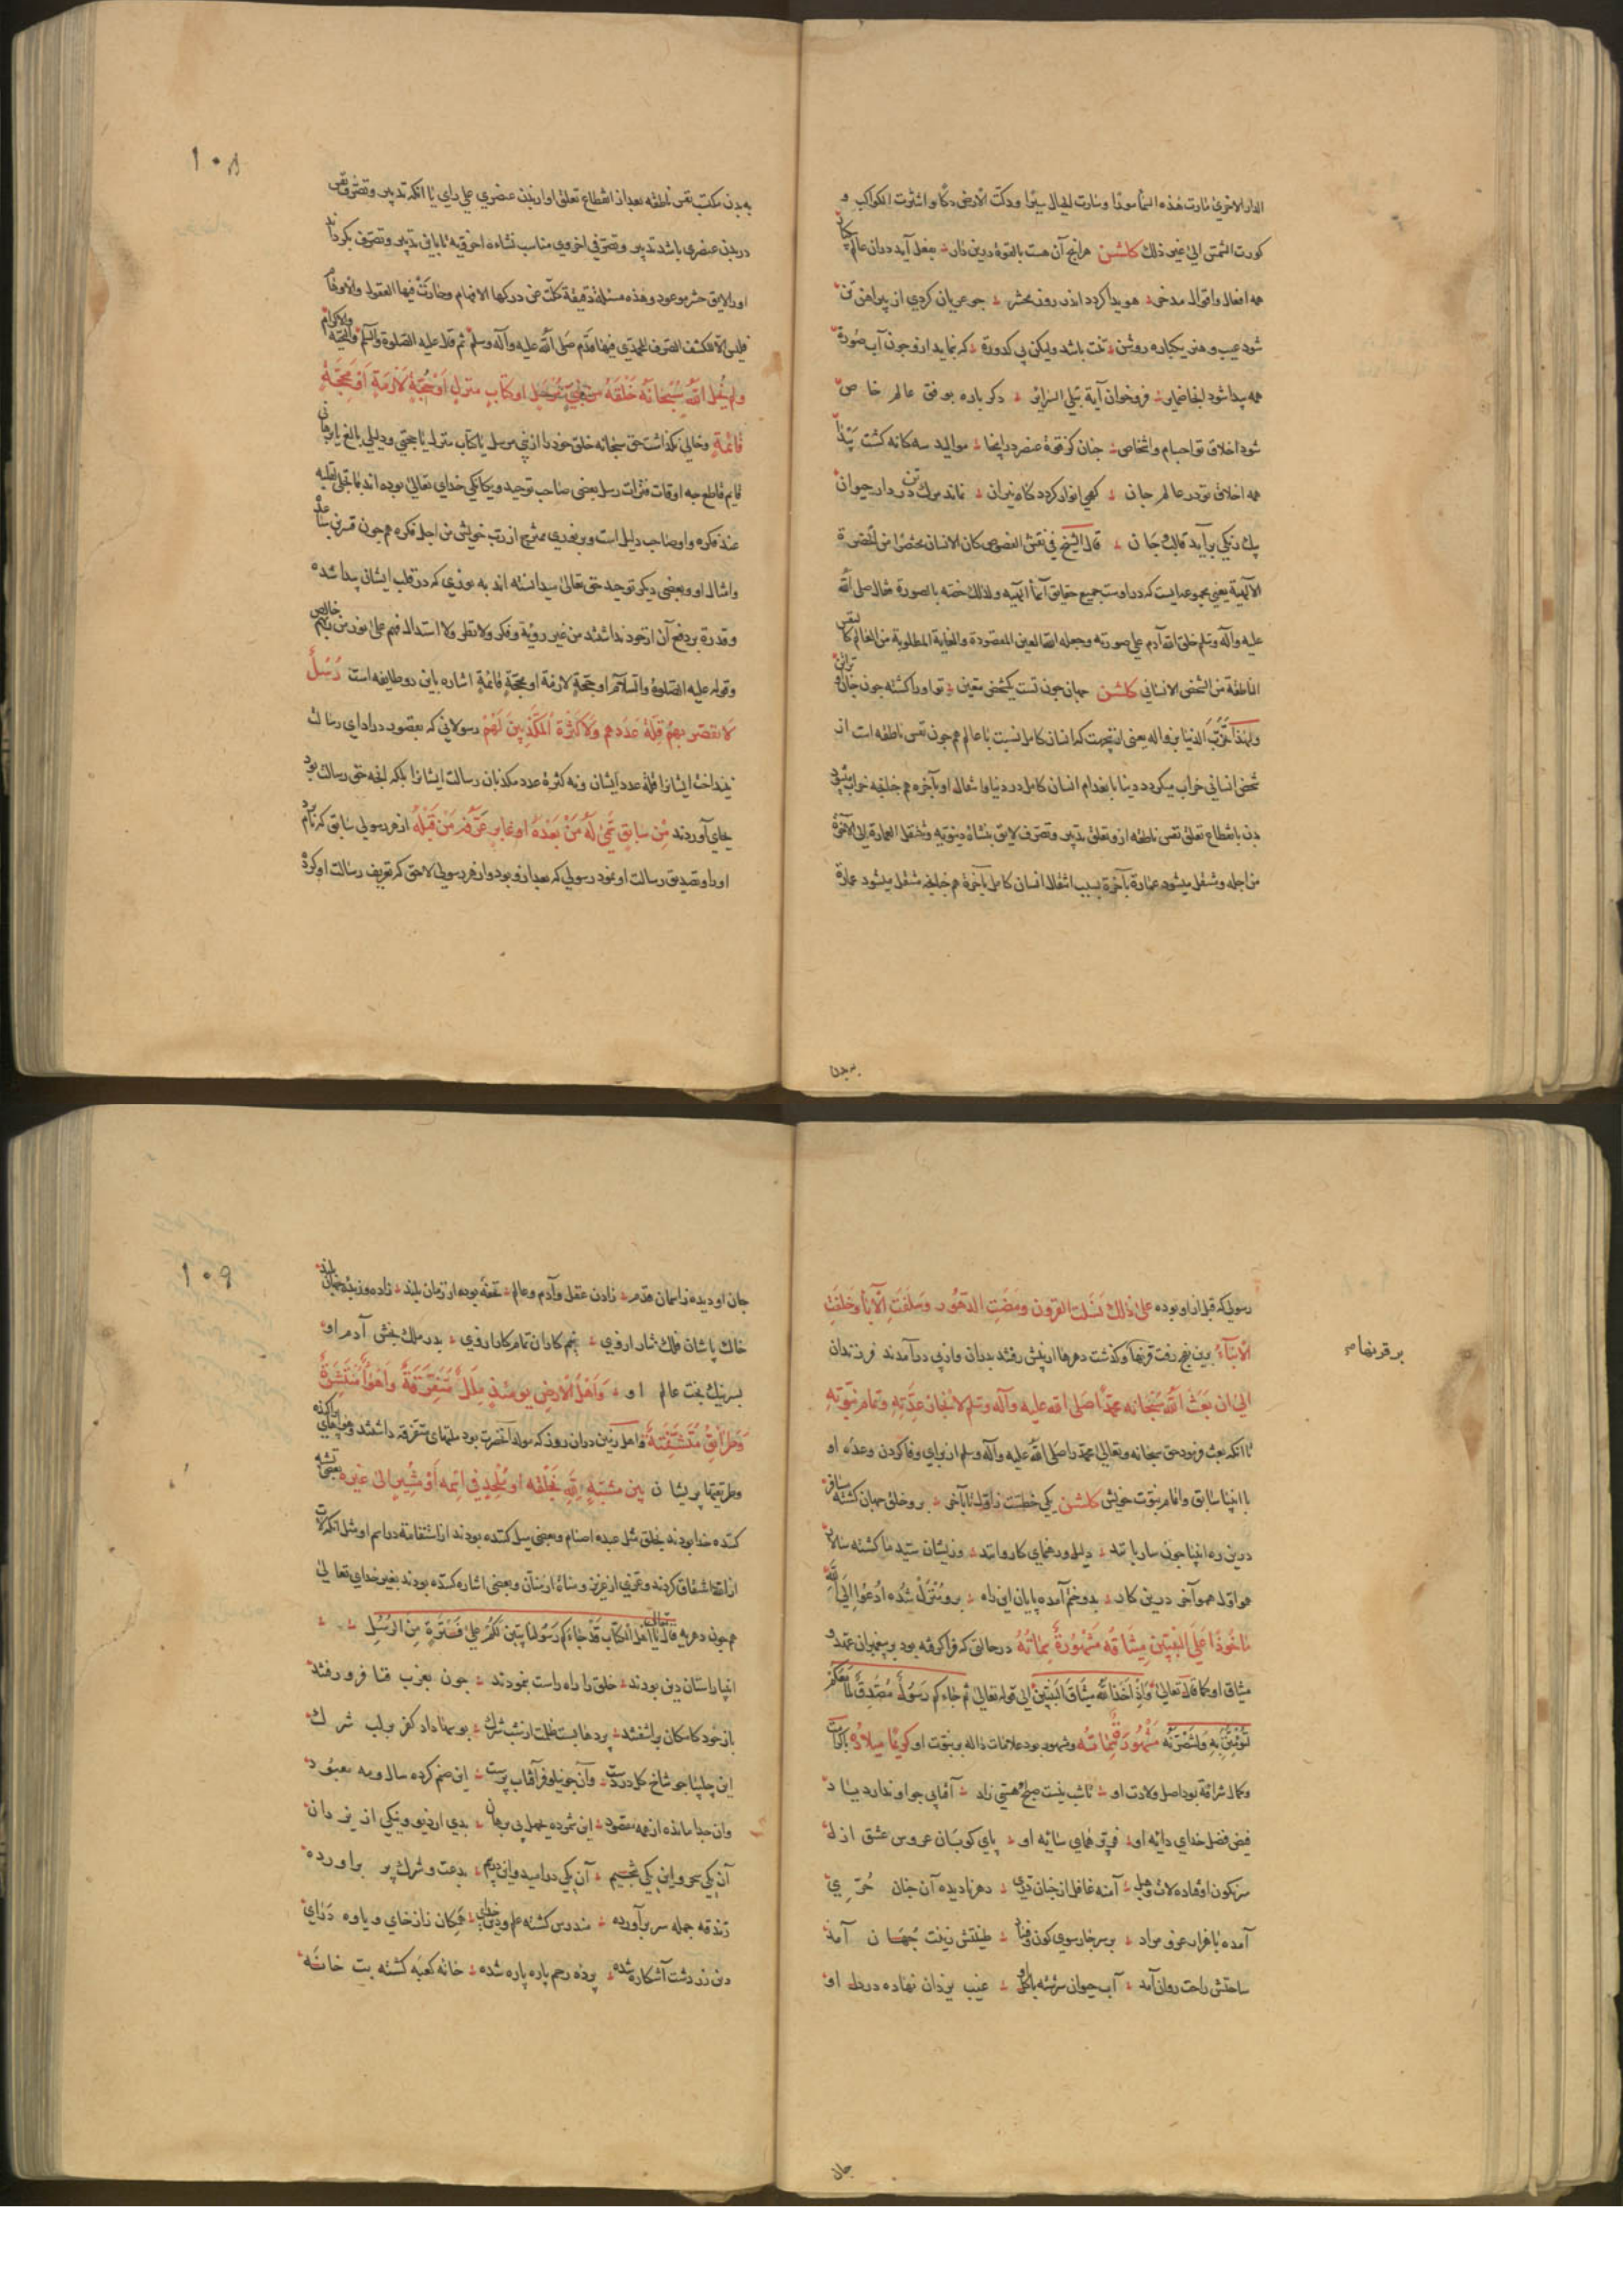 الدار الاخری فمارت هذه السمأ مورًا وسارت الجبال سیرا ودکت الارض دکا وانتثرت الکواکب و
کورت الشمس الی غیر ذلك کلشن هرانچ آن هست بالقوة درین دار بفعل آید دران عالم
همه افعال واقوال مدخر هویدا کردد اندر روز محشر جو عریان کردی از پیراهن تن
شود عیب و هنر یکباره روشن تنت باشد ولیکن بی کدورة که بنماید ازو جون آب صورة
همه پیدا شود انجا ضمایر فرو خوان آیة تبلی السرایر دکر باره بوفق عالم خاص
شود اخلاق تو اجسام واشخاص جنان کز قوة عنصر در اینجا موالید سه کانه کشت پیدا
همه اخلاق تو در عالم جان کهی انوار کردد کاه نیران نماند مرك تن در دار حیوان
یك رنکی برآید قالب و جان قال الشیخ فی نقش الفصوص کان الانسان مختصرا من الحضرة
الآلهیة یعنی مجموعه ایست که در اوست جمیع حقایق أسمأ الهیه ولذلك خصه بالصورة فقال صلی الله
علیه وآله وسلم خلق الله آدم علی صورته وجعله الله العین المقصودة والغایة المطلوبة من العالم کالنفس
الناطقة من الشخص الانسانی کلشن جهان جون تست یکشخص معین تو او را کشته جون جان او ترا تن
ولهذا تخرب الدنیا بزواله یعنی ازینجهت که انسان کامل نسبت با عالم همجون نفس ناطقه است از
شخص انسانی خراب میکردد دینا بانعدام انسان کامل در دنیا وانتقال او بآخره همجنانچه خراب میشود
بدن بانقطاع تعلق نفس ناطقه ازو تعلق تدبیر وتصرف لایق بنشاة دینویه وتنتقل العمارة الی الآخرة
من اجله ومنتقل میشود عمارة بآخرة بسبب انتقال انسان کامل بآخرة همجنانچه منتقل میشود عمارة
به بدن
١٠٨
به بدن مکتسب نفس ناطقه بعد از انقطاع تعلق او از بدن عنصری علی رای یا انکه تدبیر وتصرف نفس
در بدن عنصری باشد تدبیر وتصرفی اخروی مناسب نشاءه اخرویه یا باین تدبیر وتصرف بکرداند
او را لایق حشر موعود وهذه مسئلة دقیقة کلّت عن درکها الافهام وحارت فیها العقول والاوهام
فلیس الا للکشف الصرف المحمدی فیها قدم صلی الله علیه وآله وسلم ثم قال علیه الصلوة والسلم والتحیة والاکرام
ولم یخل الله سبحانه خلقه من نبی مرسل او کتاب منزل او حجة لازمة او محجة
قائمة وخالی نکذاشت حق سبحانه خلق خود را از نبی مرسل یا کتاب منزل یا حجتی ودلیلی بالغ یا برهانی
قایم قاطع جه اوقات فترات رسل بعضی صاحب توحید ویکانکی خدای تعالی بوده اند بما تجلی لقلبه
عند فکره واو صاحب دلیل است وبر نوری ممتزج از رتب خویش من اجل فکره همجون قس بن ساعده
وامثال او وبعضی دیکر توحید حق تعالی میدانسته اند به نوری که در قلب ایشان پیدا شده
وقدرة بر دفع آن از خود نداشتند من غیر رؤیة وفکر ولا نظر ولا استدلال فهم علی نور من ربهم خالص
وقوله علیه الصلوة والسلام او حجة لازمة او محجة قائمة اشاره باین دو طایفه است رُسُلٌ
لا تقصر بهم قلة عددهم ولا کثرة المکذبین لهم رسولانی که بقصور در ادای رسالت
نینداخت ایشان را قلة عدد ایشان ونه کثرة عدد مکذبان رسالت ایشانرا بلکه انچه حق رسالت بود
بجای آوردند من سابق سُمّی له من بعده او غابر عرّفه من قبله از هر رسولی سابق که نام برد
او را وتصدیق رسالت او نمود رسولی که بعد ازو بود واز هر رسولی لاحق که تعریف رسالت او کرد
رسولی که قبل از او بوده علی ذلك نسلت القرون ومضت الدهور وسلفت الآبأ وخلفت
الابنآء برین نهج رفت قرنها وکذشت دهرها از پیش رفتند پدران واز پی درآمدند فرزندان
برقرنها صح
الی ان بعث الله سبحانه محمدًا صلی الله علیه وآله وسلم لانجاز عدته وتمام نبوته
تا انکه بعث فرمود حق سبحانه وتعالی محمد را صلی الله علیه وآله وسلم از برای وفا کردن وعدهٔ او
با انبیا سابق واتمام نبوت خویش کلشن یکی خطست ز اول تا بآخر برو خلق جهان کشته مسافر
درین ره انبیا جون ساربانند دلیل ورهنمای کاروانند وزیشان سید ما کشته سالار
همو اول همو آخر درین کار بدو ختم آمده پایان این راه برو منزل شده ادعوا الی الله
مأخوذا علی النبیین میثاقه مشهورة سماته در حالتی که فرا کرفته بود بر پیغمبران عهد و
میثاق او کما قال تعالی واذ اخذ الله میثاق النبیین الی قوله تعالی ثم جاءکم رسول مصدق لما معکم
لتؤمنن به ولتنصرنه مشهورة سماته ومشهور بود علامات داله بر نبوت او کریما میلاده باکرامت
وکمال شرافة بود اصل ولادت او تا شب نیست صبح هستی زاد آفتابی جو او ندارد یاد
فیض فضل خدای دایه او فر پر همای سایه او پای کوبان عروس عشق ازل
سرنکون اوفتاده لات وهبل آمنه غافل از جنان دری دهر نادیده آن جنان حُرّی
آمده با هزار عز ومراد بر سر جارسوی کون وفساد طینتش زینت جهان آمد
ساحتش راحت روان آمد آب حیوان سرشته با کل او غیب یزدان نهاده در دل او
جان
١٠٩
جان او دیده ز اسمان قدم زادن عقل وآدم وعالم تحفه بوده از زمان بلند
خاك پاشان فلك نثار از وی نیم کاران تمام کار از وی پدر ملك بخش آدم او
پسر نیك بخت عالم او واهل الارض یومئذ ملل متفرقة واهوأ منتشرة
وطرایق متشتتة واهل زمین دران روز که مولد آنحضرت بود ملتهای متفرقه داشتند وهواهای پراکنده
وطریقتها پریشان بین مشبّه لله بخلقه او ملحد فی اسمه او مشیر الی غیره بعضی تشبیه
کننده خدا بودند بخلق مثل عبده اصنام وبعضی میل کننده بودند از استقامة در اسم او مثل انکه لات
از الله اشتقاق کردند وعزی از عزیز ومناة از منّان وبعضی اشاره کننده بودند بغیر خدای تعالی
همجون دهریه قال تعالی یا اهل الکتاب قد جاءکم رسولنا یبین لکم علی فترة من الرسل
انبیا راستان دین بودند خلق را راه راست بنمودند جون بغرب فنا فرو رفتند
باز خودکامکان برآشفتند پردها بست ظلمت از شب شرك بوسها داد کفر بر لب شرك
این چلیپا جو شاخ کل در دست وآن جو نیلوفر آفتاب پرست این صنم کرده سال ومه معبود
وان جدا مانده از همه مقصود این شمرده بجهل بی برهان بدی از دیو ونیکی از یزدان
آن یکی سحر واین یکی تنجیم آن یکی در امید واین در بیم بدعت وشرك پر براورده
زندقه جمله سر برآورده مندرس کشته علم ودین خدای همکان ژاژخای ویاوه درای
دین زردشت آشکاره شده پردهٔ رحم پاره پاره شده خانه کعبه کشته بت خانه